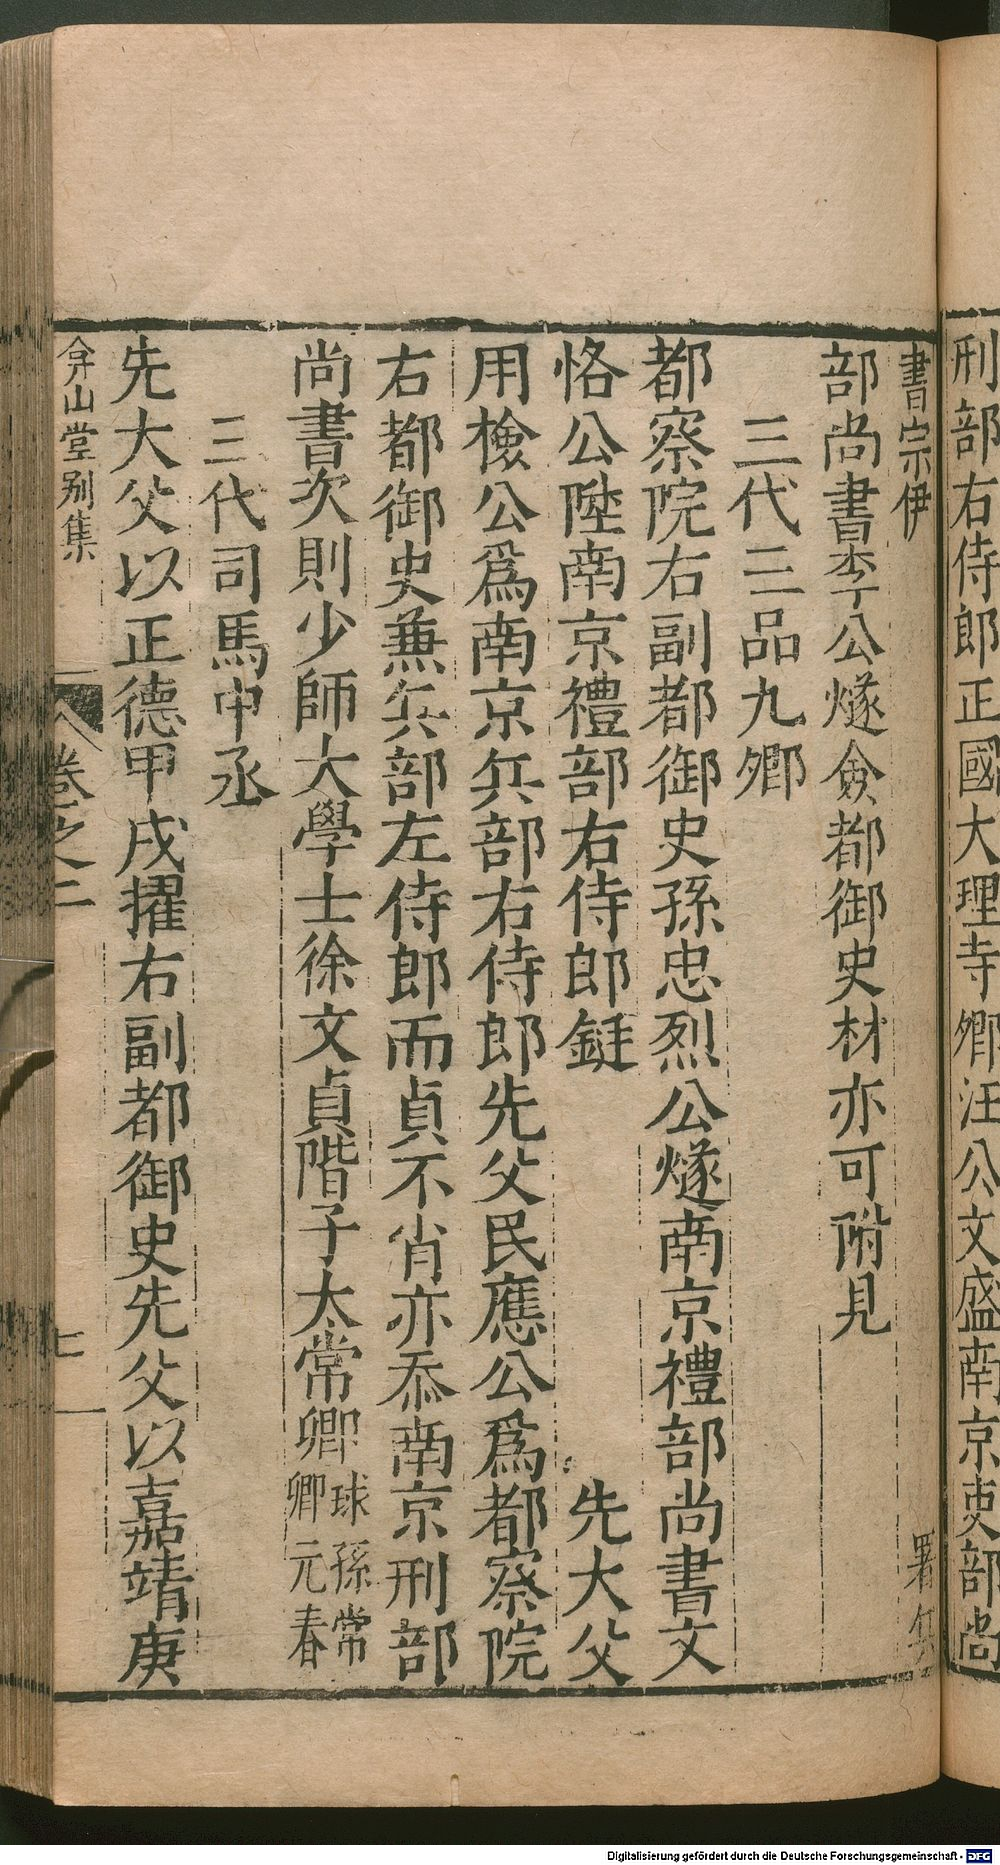 刑部右侍郎正國大理寺卿汪公文盛南京吏部尚
書宗伊 署兵
部尚書李公燧僉都御史材亦可附見
三代三品九卿
都察院右副都御史孫忠烈公燧南京禮部尚書文
恪公陞南京禮部右侍郎鋌 先大父
用檢公爲南京兵部右侍郎先父民應公爲都察院
右都御史兼兵部左侍郎而貞不肖亦忝南京刑部
尚書次則少師大學士徐文貞階子太常卿球孫常
卿元春
三代司馬中丞
先大父以正德甲戌擢右副都御史先父以嘉靖庚
弇山堂别集 卷之二 七
Digitalisierung gefördert durch die Deutsche Forschungsgemeinschaft - DFG